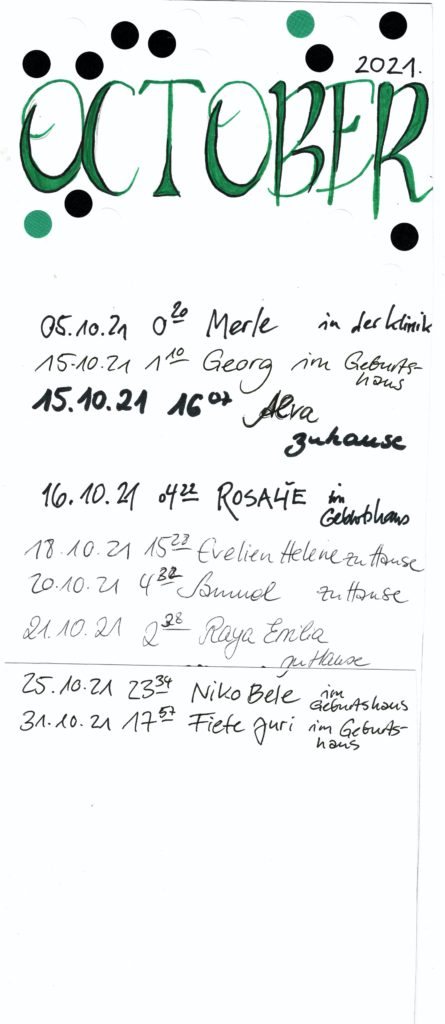 2021.
OCTOBER
05.10.21 0 20 Merle in der Klinik
15.10.21 1 10 Georg im Geburts-
haus
15.10.21 16 07 Alva
zuhause
16.10.21 04 22 ROSALIE im
Geburtshaus
18.10.21 15 23 Evelien Helene zu Hause
20.10.21 4 32 Samuel zu Hause
21.10.21 2 38 Raya Emilia
zu Hause
25.10.21 23 34 Niko Bele im
Geburtshaus
31.10.21 17 57 Fiete Juri im Geburts-
haus